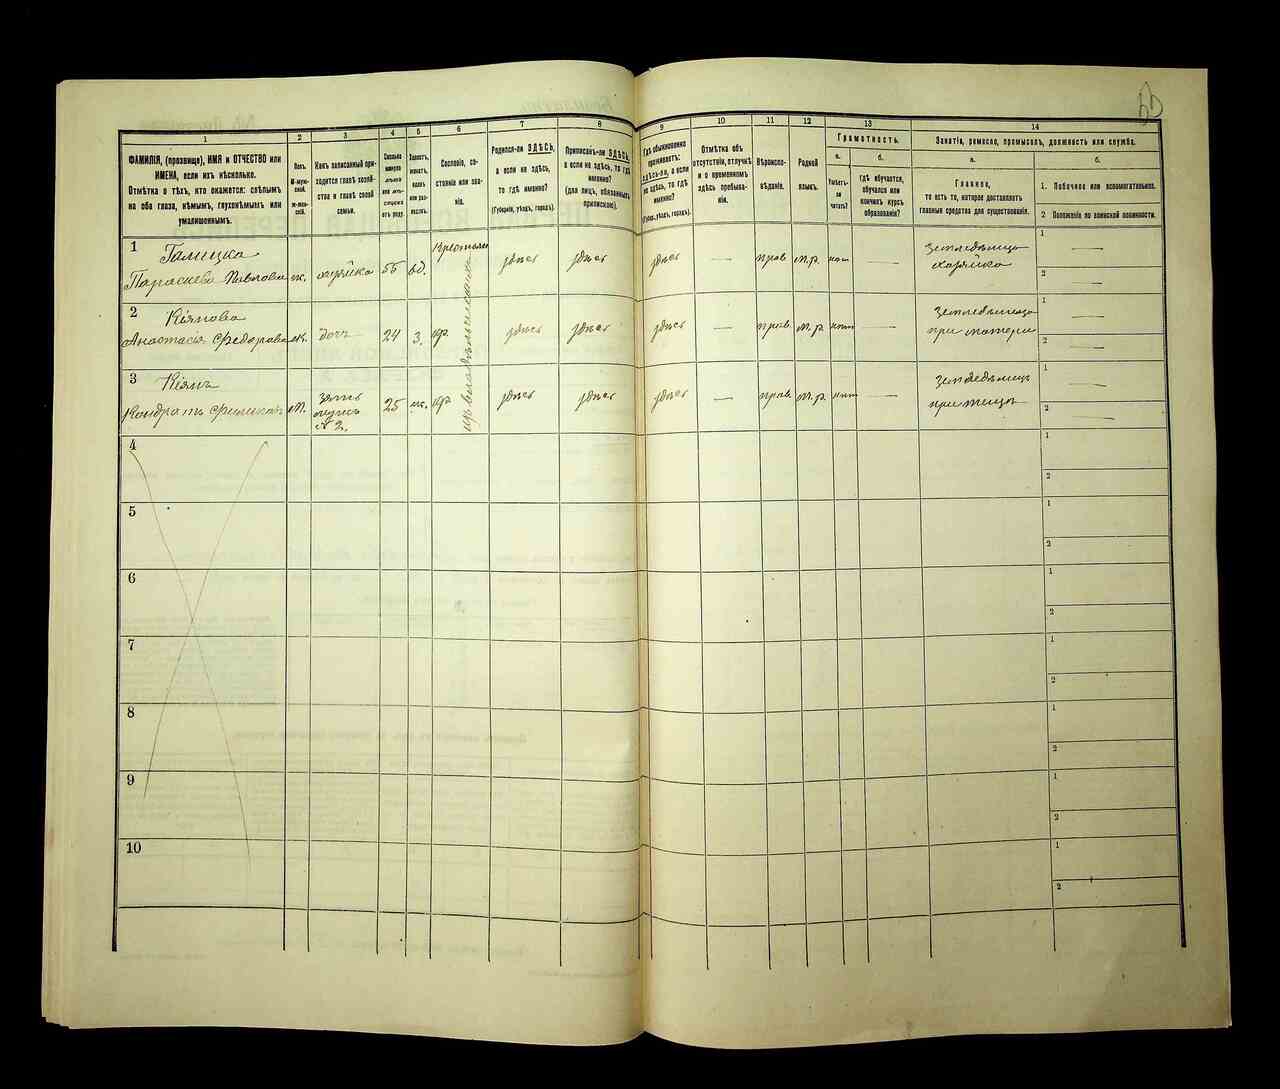 1
2
3
4
5
6
7
8
9
10
11
12
13
14
ФАМИЛІЯ, (прозвище), ИМЯ и ОТЧЕСТВО или
ИМЕНА, если ихъ нѣсколько.
Отмѣтка о тѣхъ, кто окажется: слѣпымъ
на оба глаза, нѣмымъ, глухонѣмымъ или
умалишеннымъ.
Полъ.
М-муж-
ской.
Ж-жен-
скій.
Какъ записанный при-
ходится главѣ хозяй-
ства и главѣ своей
семьи.
Сколько
минуло
лѣтъ
или мѣ-
сяцевъ
отъ роду.
Холостъ,
женатъ,
вдовъ
или раз-
веденъ.
Сословіе, со-
стояніе или зва-
ніе.
Родился-ли ЗДѢСЬ,
а если не здѣсь,
то гдѣ именно?
(Губернія, уѣздъ, городъ).
Приписанъ-ли ЗДѢСЬ,
а если не здѣсь, то гдѣ
именно?
(для лицъ, обязанныхъ
припискою).
Гдѣ обыкновенно
проживаетъ:
здѣсь-ли, а если
не здѣсь, то гдѣ
именно?
(Губер., уѣздъ, городъ).
Отмѣтка объ
отсутствіи, отлучкѣ
и о временномъ
здѣсь пребыва-
ніи.
Вѣроиспо-
вѣданіе.
Родной
языкъ.
Грамотность.
а.
б.
Умѣетъ-
ли
читать?
Гдѣ обучается,
обучался или
кончилъ курсъ
образованія?
Занятіе, ремесло, промыселъ, должность или служба.
а.
б.
Главное,
то есть то, которое доставляетъ
главныя средства для существованія.
1. Побочное или вспомогательное.
2 Положеніе по воинской повинности.
1
Параскева Павловна ж. хозяйка 55 вд. Крестьян здѣсь здѣсь здѣсь — прав м.р. нѣт —
хозяйка
1 —
2 —
2 Кіянова
Анастасія Федорова ж. дочь 24 З. кр. здѣсь здѣсь здѣсь — прав м.р. нѣт —
при матери
1 —
2 —
3 Кіянъ
Кондратъ м. зять 25 ж. кр здѣсь здѣсь здѣсь — прав м.р нѣт —
№ 2.
при тещѣ
1 —
2 —
4
1
2
5
1
2
6
1
2
7
1
2
8
1
2
9
1
2
10
1
2